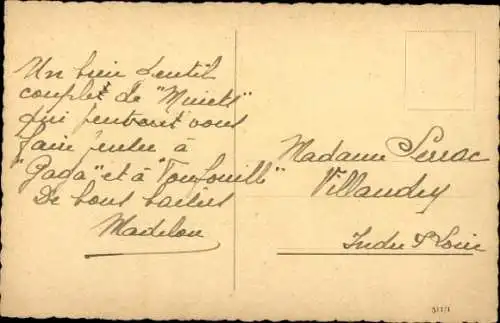 Un bien gentil
couple de "Minets"
qui feront vous
faire penser à
"Gaga" et à "Foufouille"
De bons baisers
Madelon
Madame Serrac
Villandry
Indre & Loire